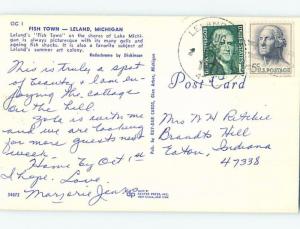 OC 1
FISH TOWN — LELAND, MICHIGAN
Leland's "Fish Town" on the shores of Lake Michigan is always picturesque with its many gulls and ageing fish shacks. It is also a favorite subject of Leland's summer art colony.
Ektachrome by Dickinson
This is truly a spot
of beauty & I am en-
joying the cottage
on the hill.
Zola is with me
and we are looking
for more guests next
week.
Home by Oct 1st
I hope. Love.
Marjorie
54972
Post Card
Mrs N H Ritchie
Brandt Hill
Eaton, Indiana
47338
LELAND
5¢ U.S. POSTAGE